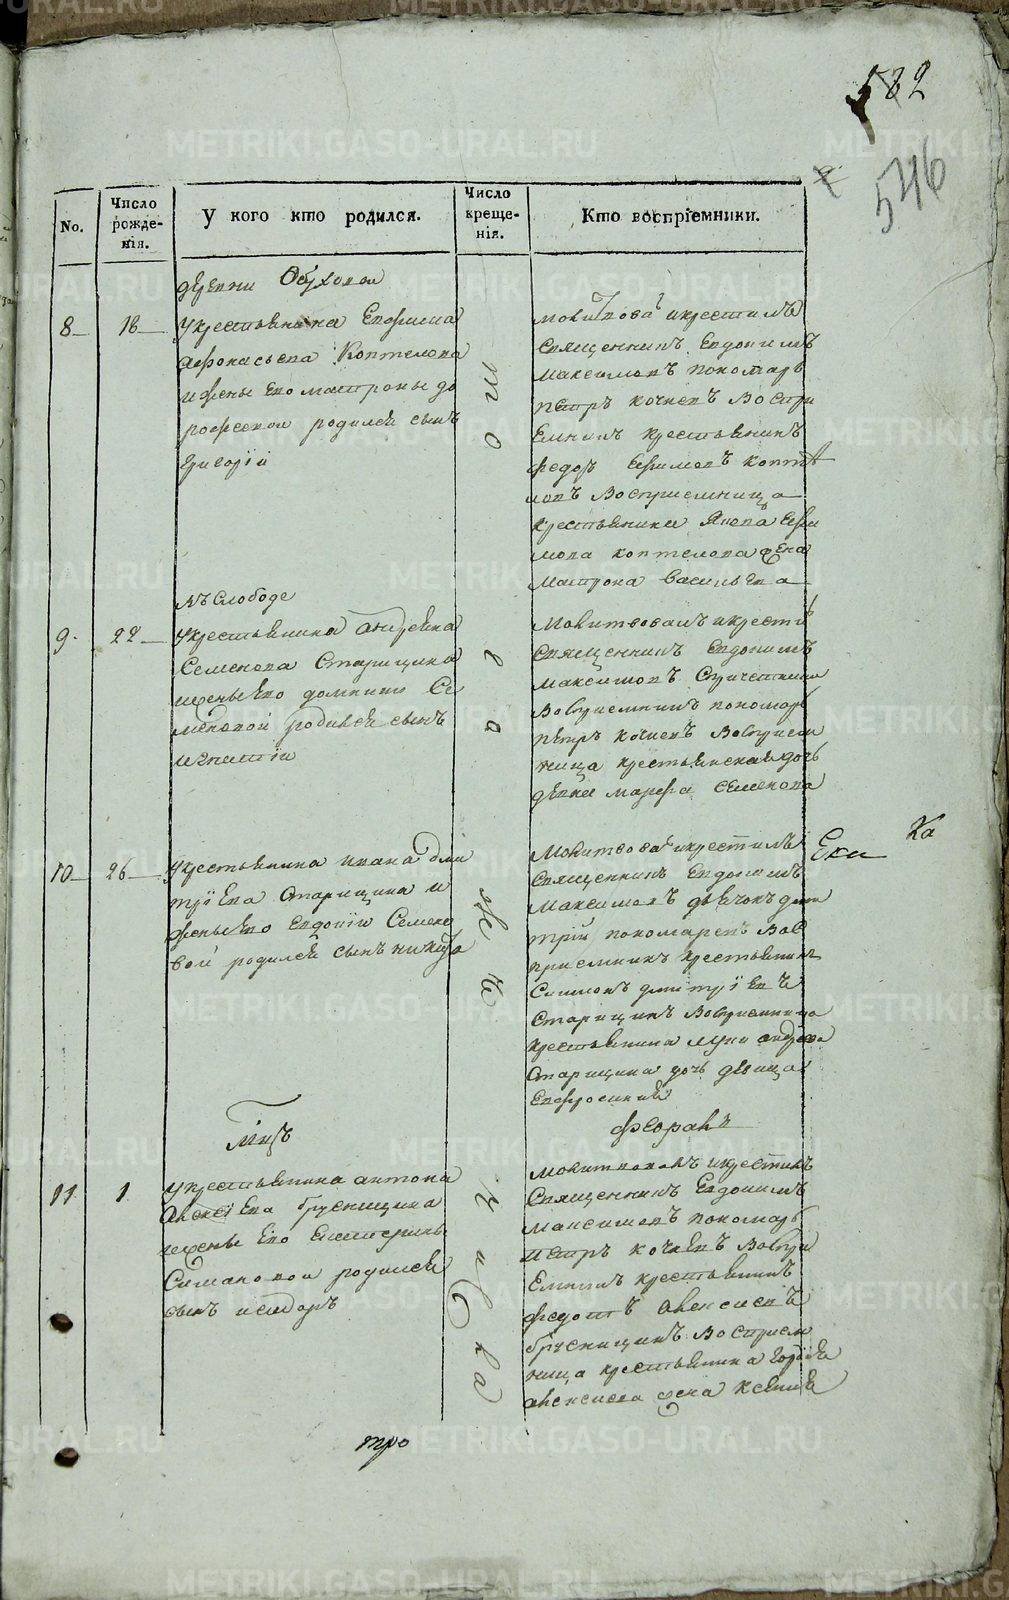 582
546
No.
Число рожде-нія.
У кого кто родился.
Число креще-нія.
Кто воспріемники.
деревни Обуховой
8 18 Укрестьянина Ефрема
Афонасьева Коптелова
ижены Его матроны до
рофеевой родился сынъ
григорій
того
молитвова икрестилъ
Священникъ Евдокимъ
Максимовъ пономарь
петръ кочневъ Воспри
Емникъ крестьянинъ
федоръ Ефимовъ копте
ловъ Восприемница
крестьянина Якова Ефи
мова коптелова жена
матрона Васильева
въ Слободе
9 22 Укрестьянина Андреяна
Семенова Старицина
ижены Его домники Се
меновой родился сынъ
игнатій
молитвовалъ икрести
Священникъ Евдокимъ
Максимовъ Спричетники
Восприемникъ пономарь
петръ кочневъ Восприем
ница крестьянская дочь
девка марфа семенова
10 26 Укрестьянина ивана дми
тріева Старицина и
жены Его Евдокіи Семено
вой родился сынъ никита
же
молитвова икрестилъ
Священникъ Евдокимъ
Максимовъ дьячокъ дми
трій пономаревъ Вос
приемникъ крестьянинъ
Симионъ дмитріевъ
Старицинъ Восприемница
крестьянина луки андреева
Старицина дочь девица
Евфросинія
Ека
Ка
Мцъ февраль
11 1 Укрестьянина антона
Алексіева брусницина
ижены Его Екатерины
Симановой родился
сынъ исидоръ
числа
молитвовалъ икрестилъ
Священникъ Евдокимъ
Максимовъ пономарь
петръ кочневъ Воспри
Емникъ крестьянинъ
федотъ алексеевъ
брусницинъ Восприем
ница крестьянина
алексеева жена Ксения
тро
METRIKI.GASO-URAL.RU